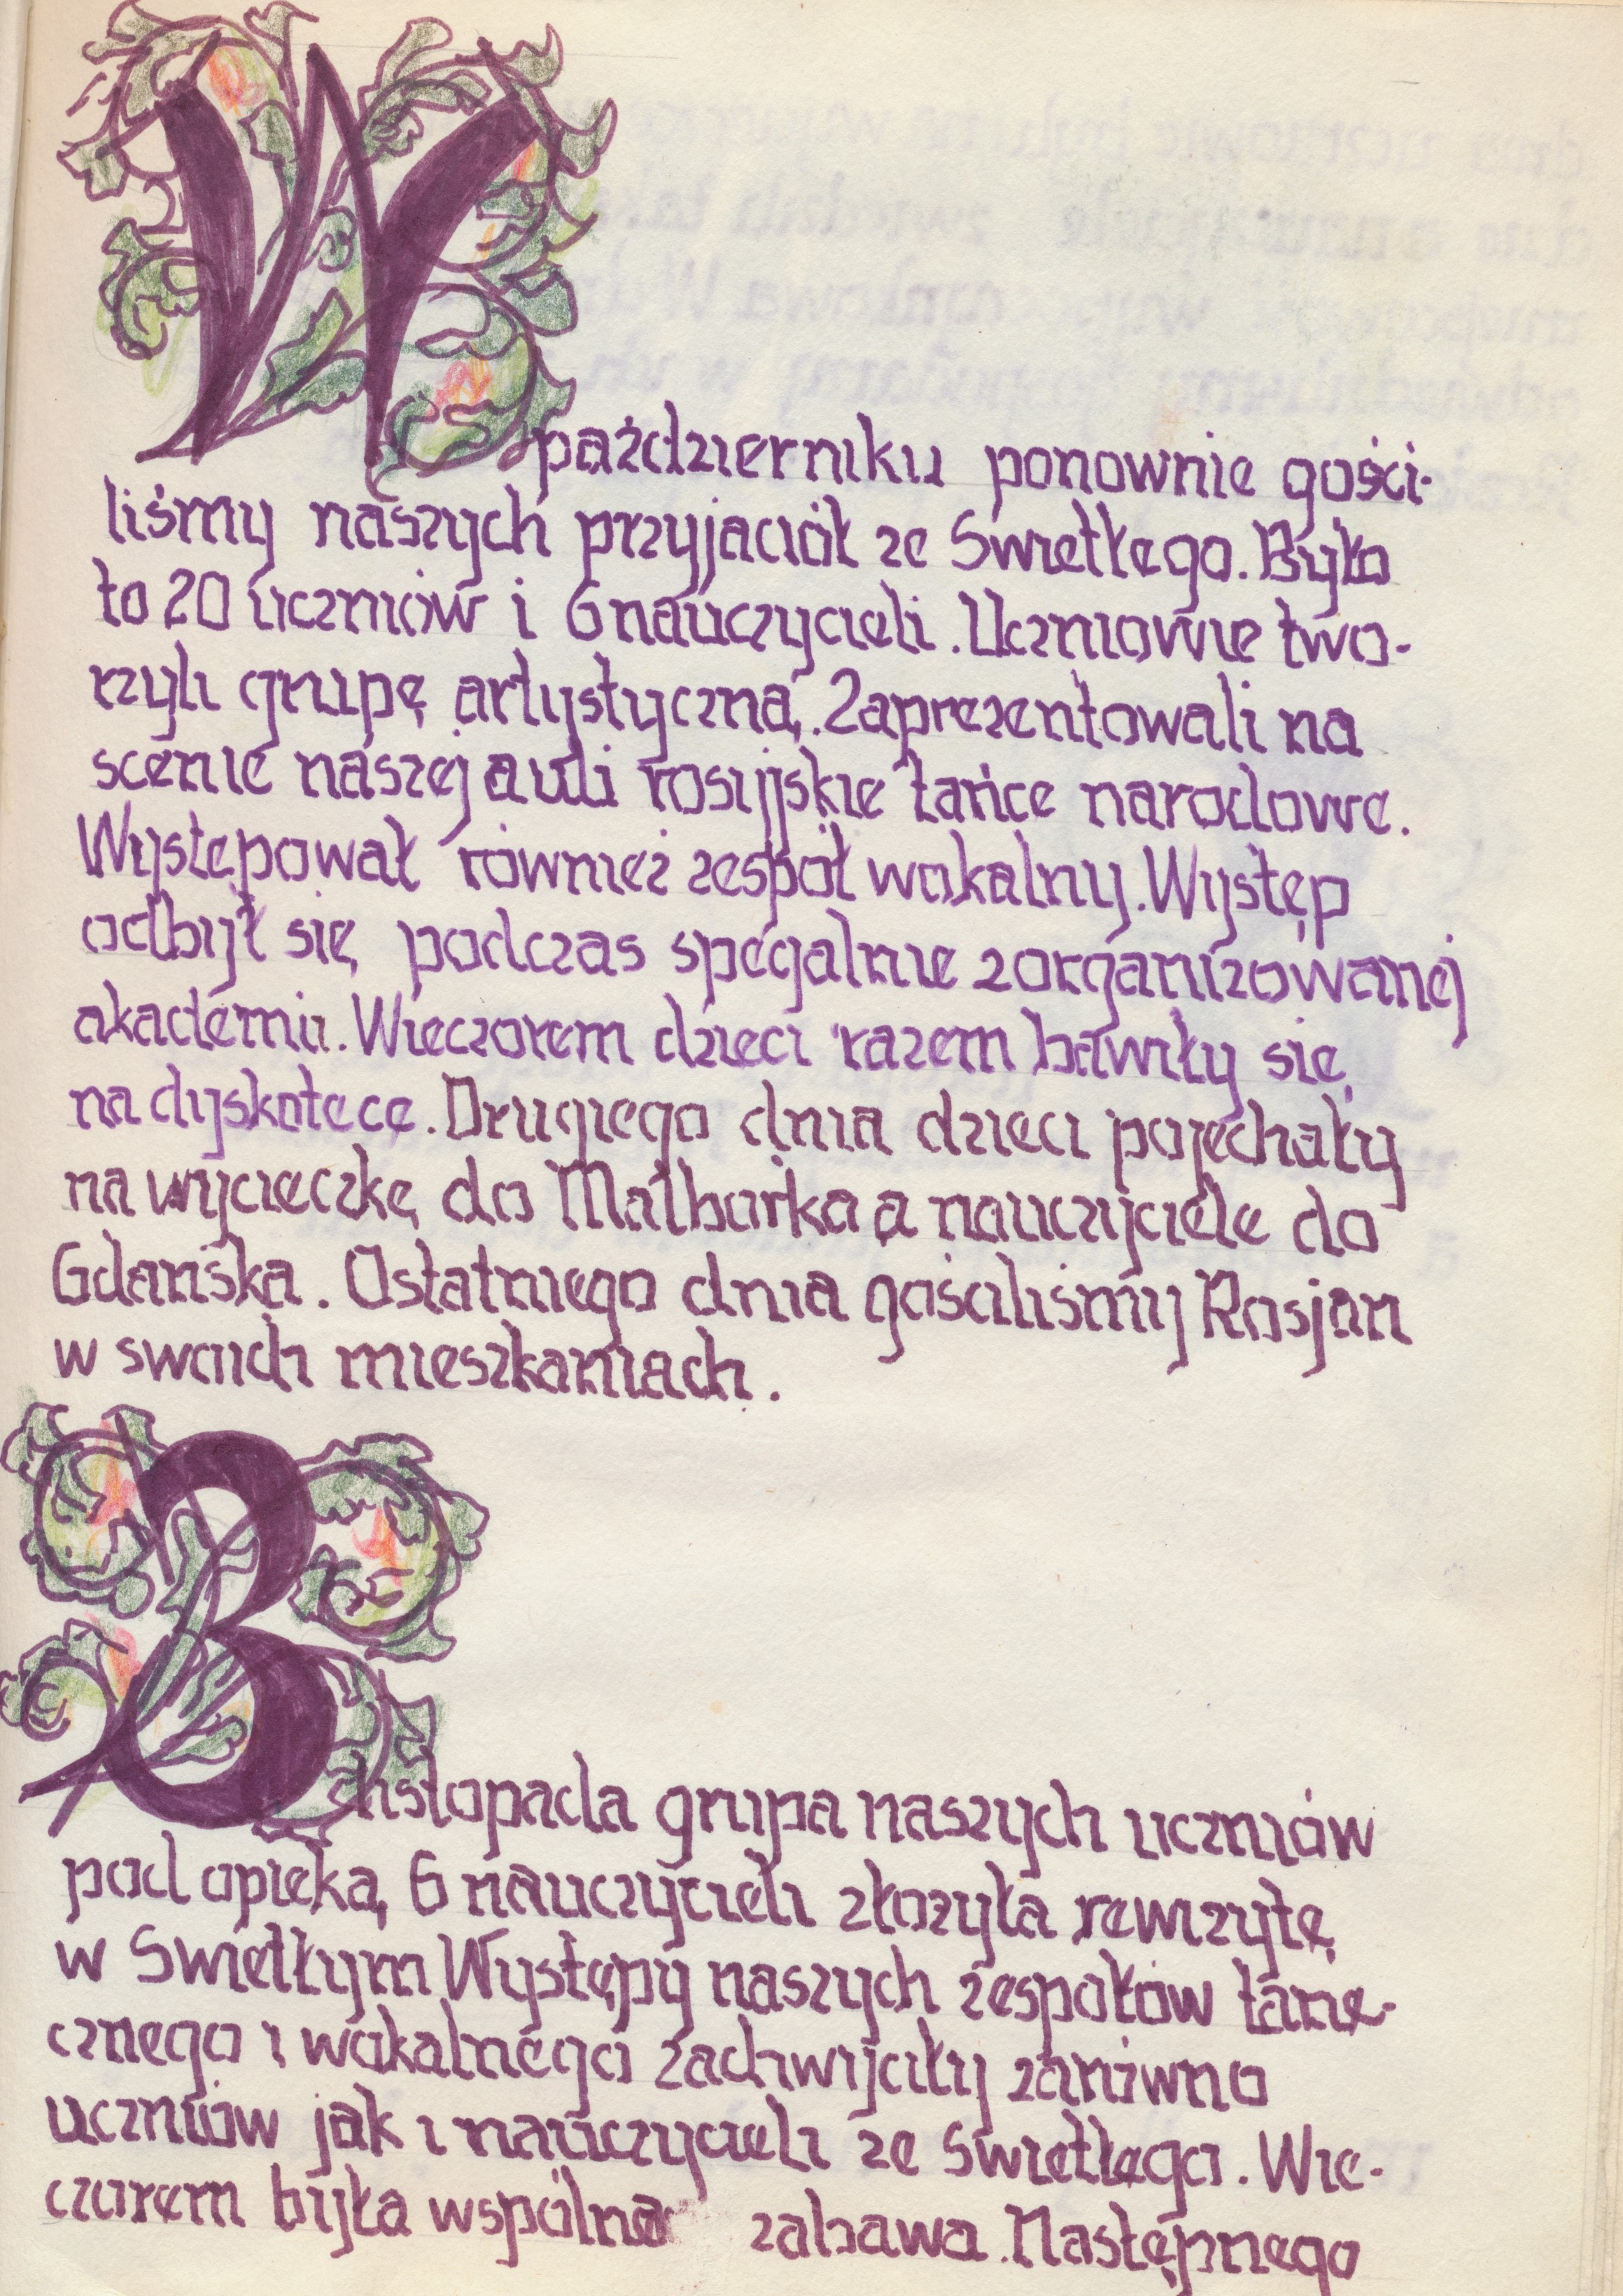 W październiku ponownie gości-
liśmy naszych przyjaciół ze Swietłego. Było
to 20 uczniów i 6 nauczycieli. Uczniowie two-
rzyli grupę artystyczną. Zaprezentowali na
scenie naszej auli rosyjskie tańce narodowe.
Występował również zespół wokalny. Występ
odbył się podczas specjalnie zorganizowanej
akademii. Wieczorem dzieci razem bawiły się
na dyskotece. Drugiego dnia dzieci pojechały
na wycieczkę do Malborka a nauczyciele do
Gdańska. Ostatniego dnia gościliśmy Rosjan
w swoich mieszkaniach.
3 listopada grupa naszych uczniów
pod opieką 6 nauczycieli złożyła rewizytę
w Swietłym Występy naszych zespołów tane-
cznego i wokalnego zachwyciły zarówno
uczniów jak i nauczycieli ze Swietłego. Wie-
czorem była wspólna zabawa. Następnego